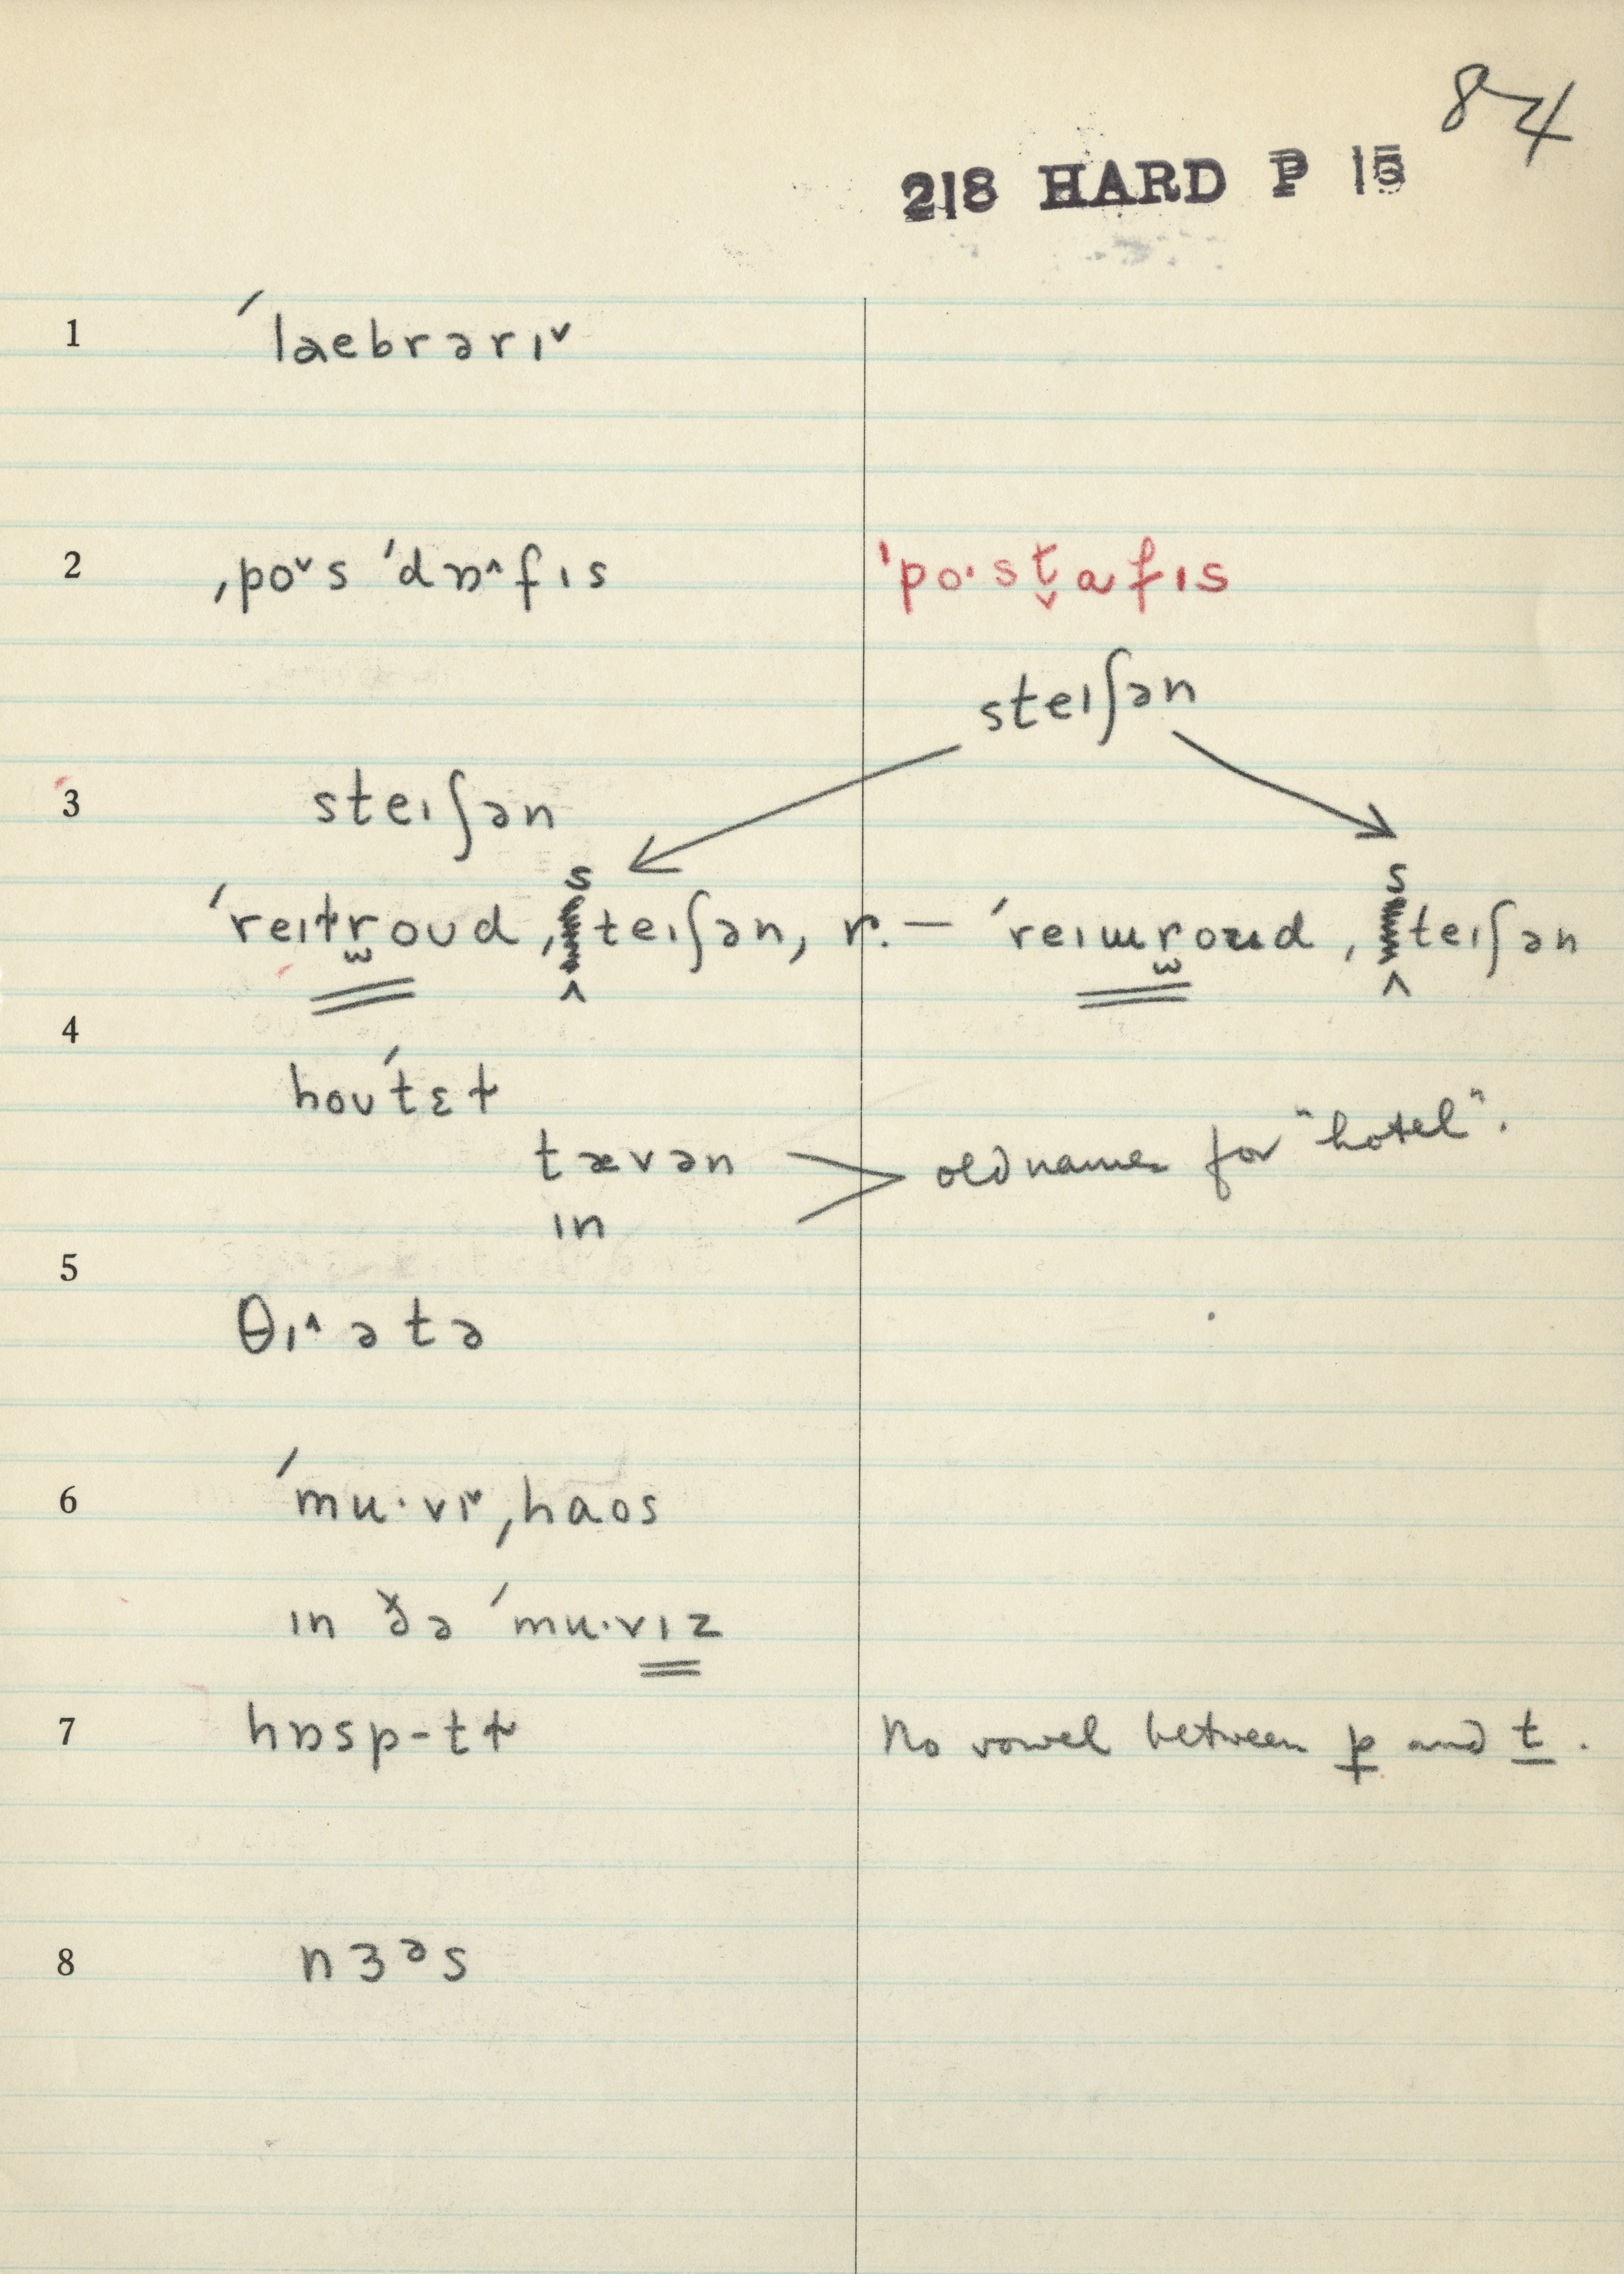 84
218 HARD P 15
1 ˊlaebrərɪ˅
2 ˏpo˅s ˊdɒ˄fɪs ˈpo·st̬afɪs
steɪʃən
3 steɪʃən
s s
ˊreɪɫr̫oʊd ˏteɪʃən, r. — ˊreɪɯr̫oʊd ˏteɪʃən
^ ^
4
hoʊˊtɛɫ
tævən old names for "hotel".
ɪn
5
θɪ˄ətə
6 ˊmu·vɪ˅ˏhaos
ɪn ðə ˊmu·vɪz
7 hɒsp-tɫ No vowel between p and t.
8 nɜᵊs